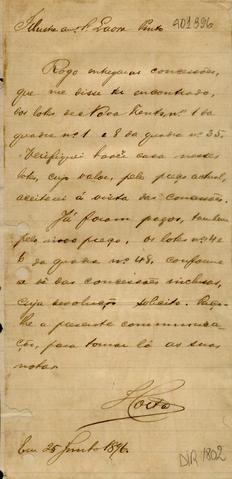 Illustre am.º Snr. Pinto 401396
Rogo entregar as concessões,
que me disse ter encontrado,
dos lotes da Nova Trento, n.º 1 da
quadra n.º 1 e 8 da quadra n.º 35.
Verifiquei haver casa nesses
lotes, cujo valor, pelo preço actual,
aceitarei á vista das concessões.
Já foram pagos, tambem
pelo novo preço, os lotes n.º 4 e
6 da quadra n.º 48, conforme
se vê das concessões inclusas,
cuja devolução solicito. Faço-
lhe a presente communica-
ção, para tomar lá as suas
notas.
Em 25 Junho 1896.
DIR.1802